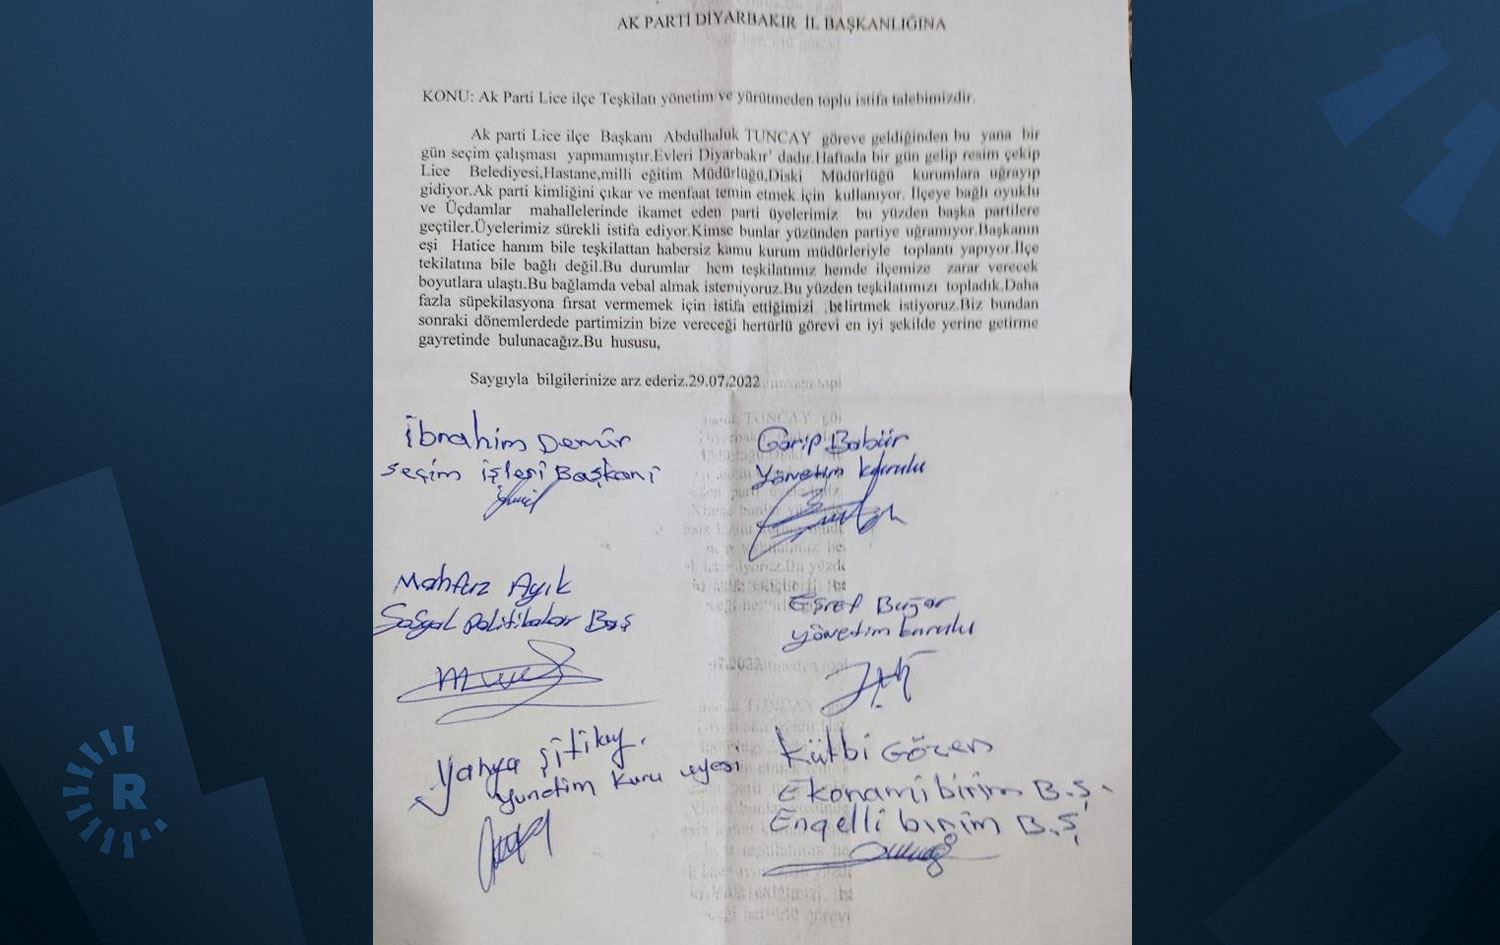 AK PARTİ DİYARBAKIR İL BAŞKANLIĞINA
KONU: Ak Parti Lice ilçe Teşkilatı yönetim ve yürütmeden toplu istifa talebimizdir.
Ak parti Lice ilçe Başkanı Abdulhaluk TUNCAY göreve geldiğinden bu yana bir
gün seçim çalışması yapmamıştır.Evleri Diyarbakır' dadır.Haftada bir gün gelip resim çekip
Lice Belediyesi,Hastane,milli eğitim Müdürlüğü,Diski Müdürlüğü kurumlara uğrayıp
gidiyor.Ak parti kimliğini çıkar ve menfaat temin etmek için kullanıyor. İlçeye bağlı oyuklu
ve Üçdamlar mahallelerinde ikamet eden parti üyelerimiz bu yüzden başka partilere
geçtiler.Üyelerimiz sürekli istifa ediyor.Kimse bunlar yüzünden partiye uğramıyor.Başkanın
eşi Hatice hanım bile teşkilattan habersiz kamu kurum müdürleriyle toplantı yapıyor.İlçe
tekilatına bile bağlı değil.Bu durumlar hem teşkilatımız hemde ilçemize zarar verecek
boyutlara ulaştı.Bu bağlamda vebal almak istemiyoruz.Bu yüzden teşkilatımızı topladık.Daha
fazla süpekilasyona fırsat vermemek için istifa ettiğimizi ,belirtmek istiyoruz.Biz bundan
sonraki dönemlerdede partimizin bize vereceği hertürlü görevi en iyi şekilde yerine getirme
gayretinde bulunacağız.Bu hususu,
Saygıyla bilgilerinize arz ederiz.29.07.2022
İbrahim Demir
Seçim işleri Başkanı
Garip Babür
Yönetim kurulu
Mahfuz Ayık
Sosyal politikalar Baş
Eşref Buğar
yönetim kurulu
Yahya
yunetim kuru uyesi
Kütbi Gözen
Ekonami birim B.Ş.
Engelli birim B.Ş
R